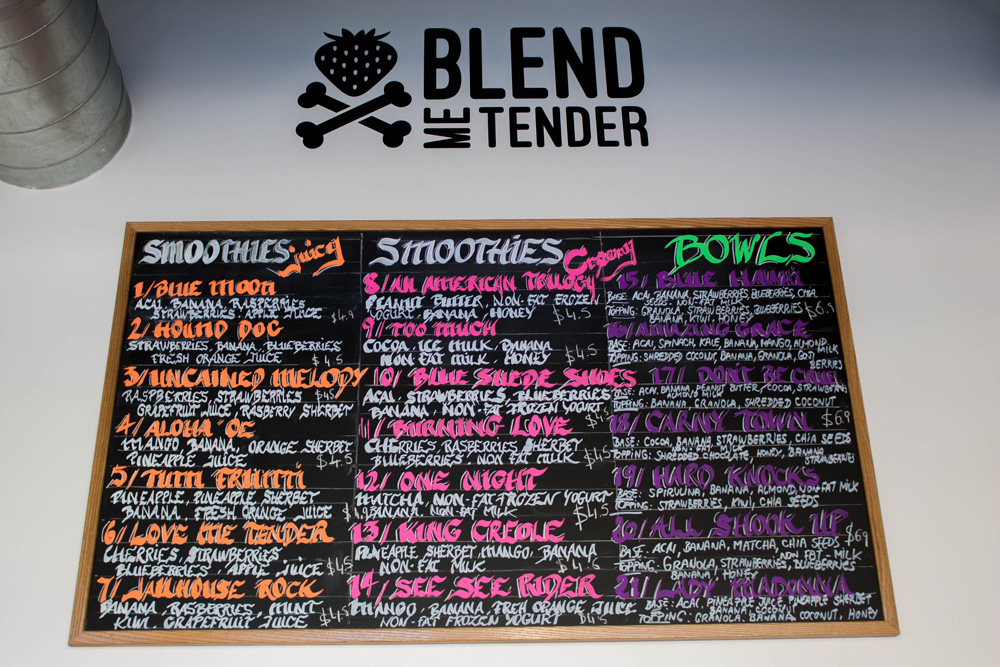 BLEND
ME TENDER
SMOOTHIES juicy
1/ BLUE MOON
ACAI, BANANA, RASPBERRIES
STRAWBERRIES, APPLE JUICE $4.9
2/ HOUND DOG
STRAWBERRIES, BANANA, BLUEBERRIES
FRESH ORANGE JUICE $4.5
3/ UNCAINED MELODY
RASPBERRIES, STRAWBERRIES $4.5
GRAPEFRUIT JUICE, RASBERRY SHERBET
4/ ALOHA 'OE
MANGO, BANANA, ORANGE SHERBET
PINEAPPLE JUICE $4.5
5/ TUTTI FRUITTI
PINEAPPLE, PINEAPPLE SHERBET
BANANA, FRESH ORANGE JUICE $
6/ LOVE ME TENDER
CHERRIES, STRAWBERRIES
BLUEBERRIES, APPLE JUICE $4.5
7/ JAILHOUSE ROCK
BANANA, RASBERRIES, MINT
KIWI, GRAPEFRUIT JUICE $4.5
SMOOTHIES Creamy
8/ AN AMERICAN TRILOGY
PEANUT BUTTER, NON-FAT FROZEN
YOGURT, BANANA, HONEY $4.5
9/ TOO MUCH
COCOA, ICE MILK, BANANA
NON FAT MILK, HONEY $4.5
10/ BLUE SUEDE SHOES
ACAI, STRAWBERRIES, BLUEBERRIES
BANANA, NON-FAT FROZEN YOGURT
11/ BURNING LOVE
CHERRIES, RASBERRIES, SHERBET
BLUEBERRIES, NON FAT MILK $4.5
12/ ONE NIGHT
MATCHA, NON-FAT-FROZEN YOGURT
BANANA, NON-FAT MILK $4.5
13/ KING CREOLE
PINEAPPLE, SHERBET, MANGO, BANANA
NON-FAT MILK $4.5
14/ SEE SEE RIDER
MANGO, BANANA, FRESH ORANGE JUICE
NON-FAT FROZEN YOGURT $4.5
BOWLS
15/ BLUE HAWAII
BASE: ACAI, BANANA, STRAWBERRIES, BLUEBERRIES, CHIA
SEEDS, NON-FAT MILK
TOPPING: GRANOLA, STRAWBERRIES, BLUEBERRIES $6.9
BANANA, KIWI, HONEY
16/ AMAZING GRACE
BASE: ACAI, SPINACH, KALE, BANANA, MANGO, ALMOND MILK
TOPPING: SHREDDED COCONUT, BANANA, GRANOLA, GOJI BERRIES
17/ DON'T BE
BASE: ACAI, BANANA, PEANUT BUTTER, COCOA, STRAWBERRIES
ALMOND MILK
TOPPING: BANANA, GRANOLA, SHREDDED COCONUT
18/ CARNY TOWN $6.9
BASE: COCOA, BANANA, STRAWBERRIES, CHIA SEEDS
NON-FAT MILK
TOPPING: SHREDDED CHOCOLATE, HONEY, BANANA
STRAWBERRIES
19/ HARD KNOCKS
BASE: SPIRULINA, BANANA, ALMOND, NON-FAT MILK
TOPPING: STRAWBERRIES, KIWI, CHIA SEEDS
20/ ALL SHOOK UP $6.9
BASE: ACAI, BANANA, MATCHA, CHIA SEEDS
NON FAT-MILK
TOPPING: GRANOLA, STRAWBERRIES, BLUEBERRIES
BANANA, HONEY
21/ LADY MADONNA
BASE: ACAI, PINEAPPLE JUICE, PINEAPPLE SHERBET
BANANA, COCONUT
TOPPING: GRANOLA, BANANA, COCONUT, HONEY